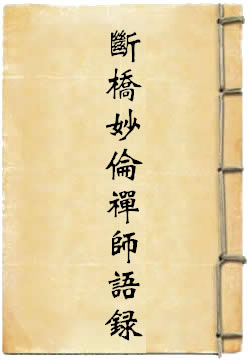 斷橋妙倫禪師語録